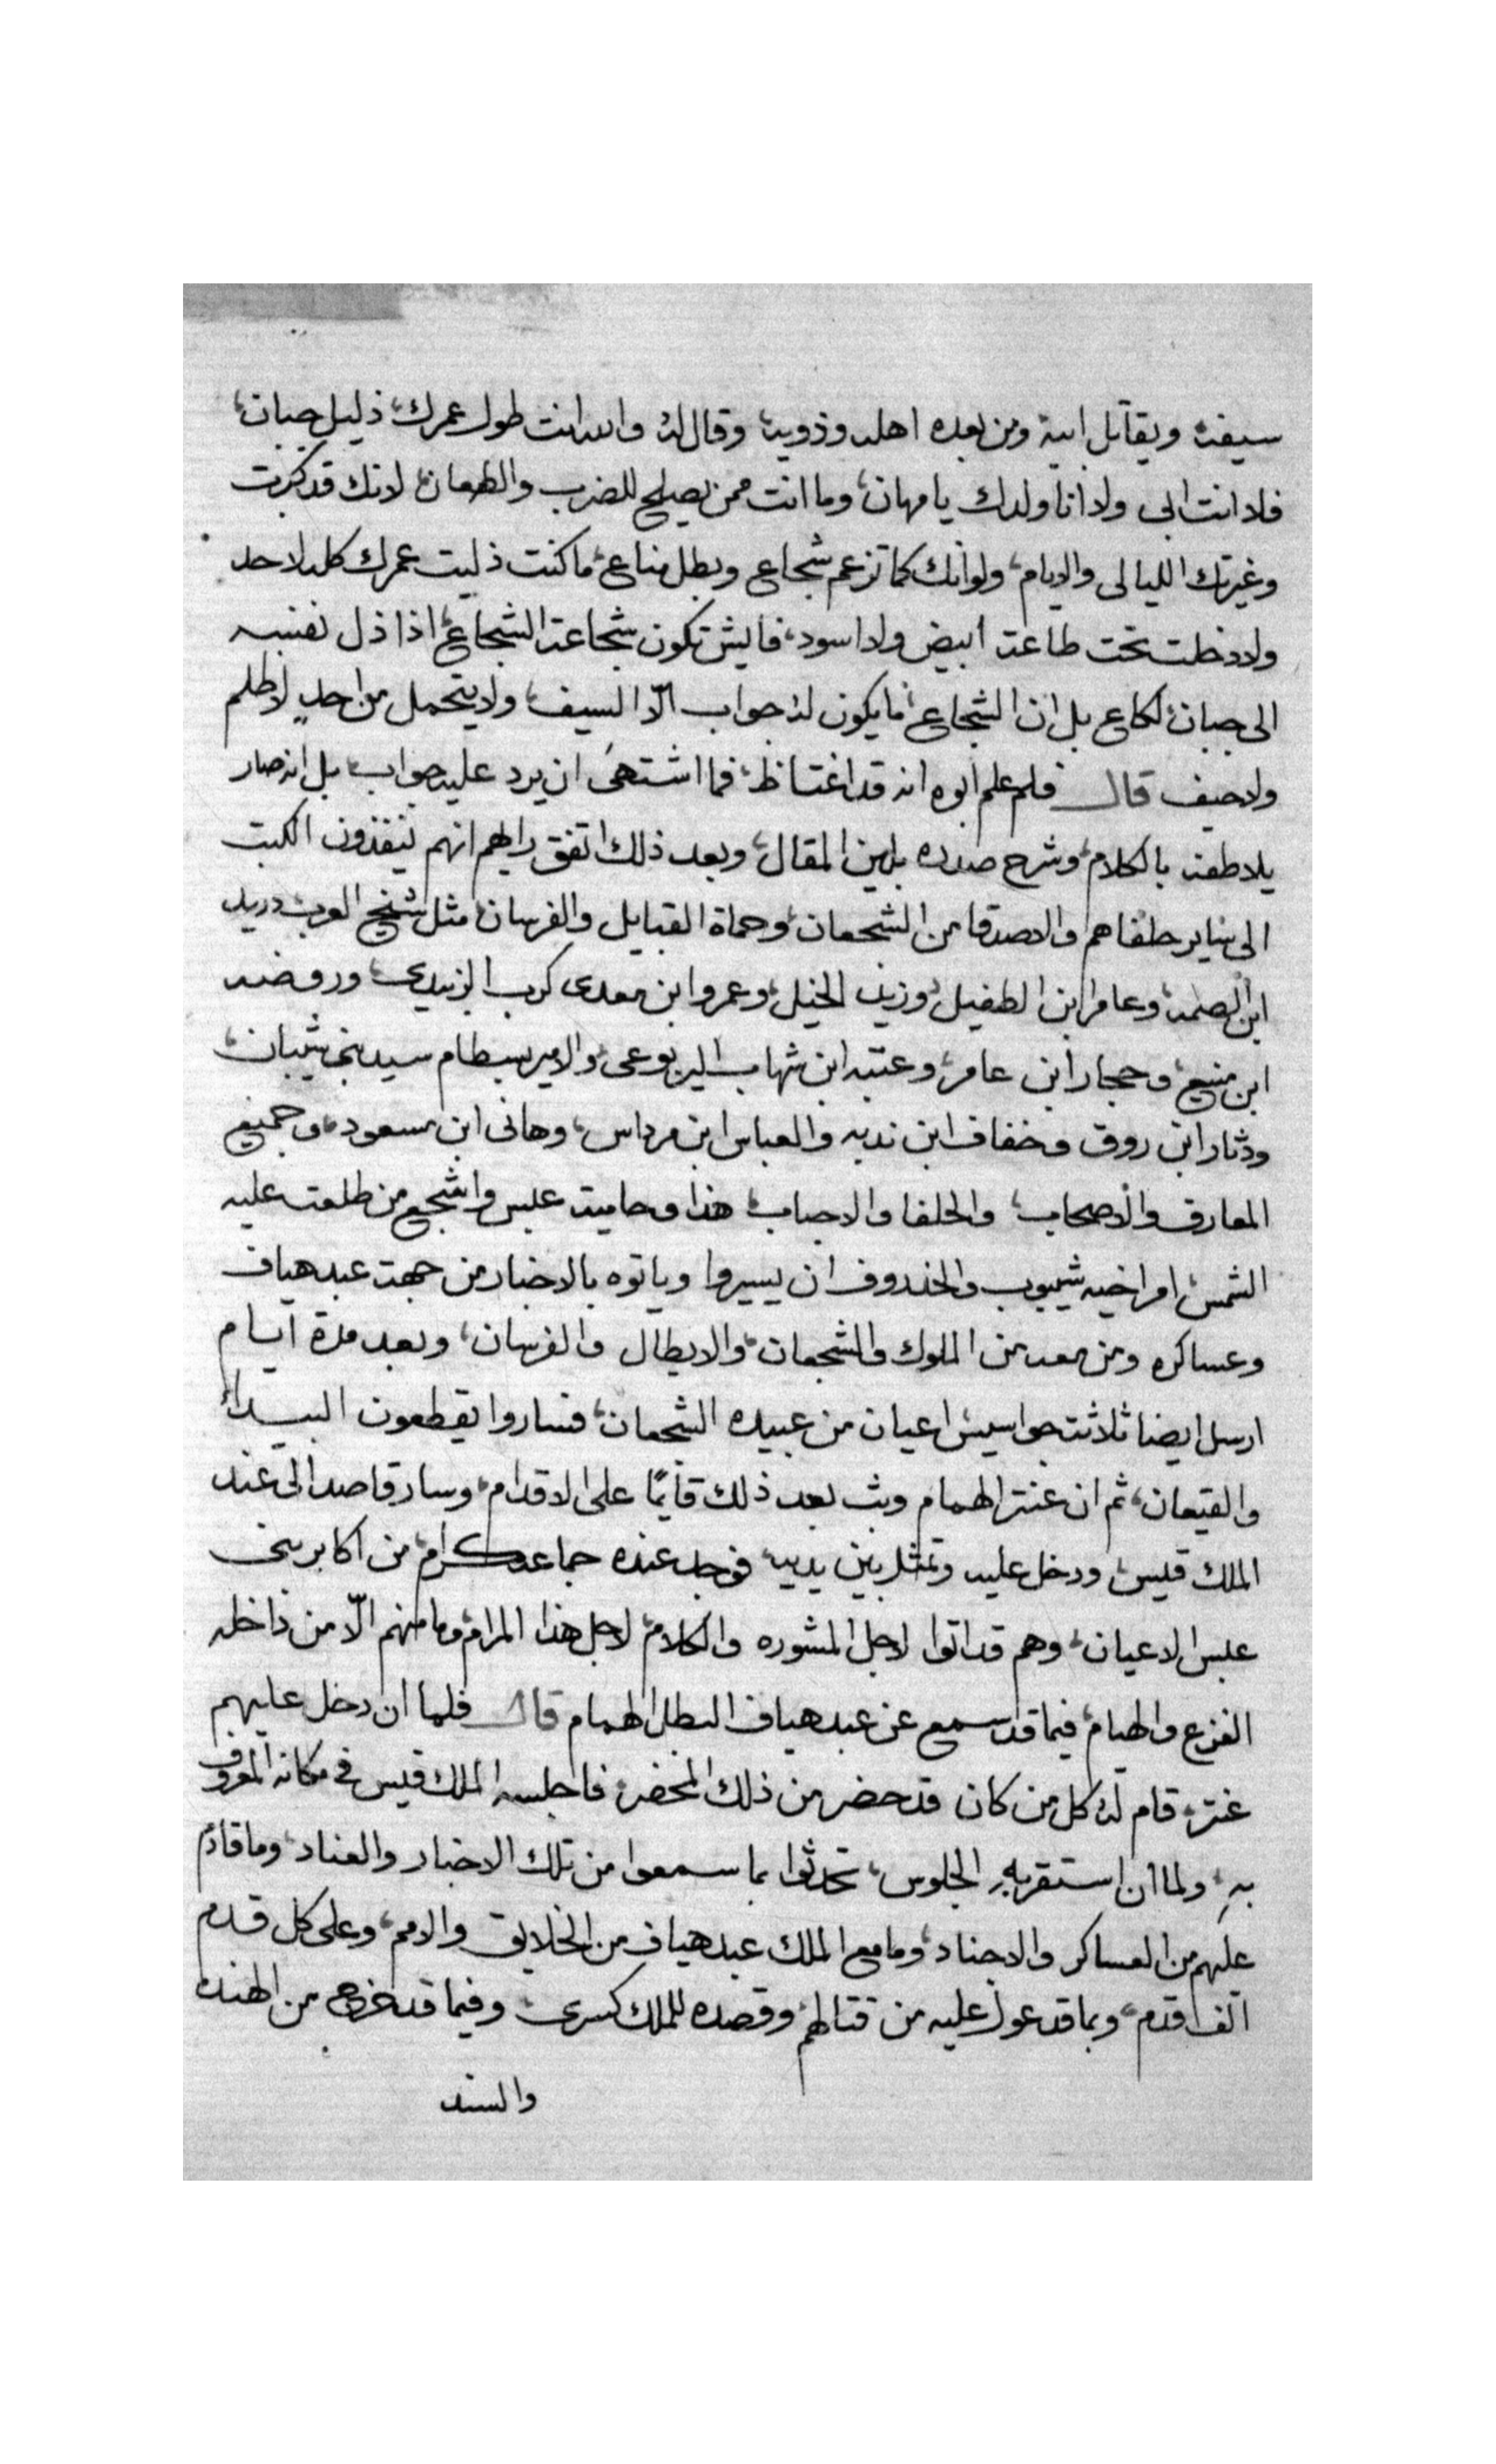 سيفه ويقاتل ابيه ومن بعده اهله وذويه، وقال له والله انت طول عمرك، ذليل جبان،
فلا انت ابي ولا أنا ولدك يا مهان، وما انت ممن يصلح للضرب والطعان، لانك قد كبرت
وغيرتك الليالي والايام، ولو انك كما تزعم شجاع وبطل مناع، ما كنت ذليت عمرك كله لاحد
ولا دخلت تحت طاعة ابيض ولا اسود، فايش تكون شجاعة الشجاع، اذا ذل نفسه
الى جبان لكاع بل ان الشجاع، ما يكون له جواب الّا السيف، ولا يتحمل من احدٍ لا ظلم
ولا حيف قال فلم علم ابوه انه قد اغتاظ، فما اشتهىَ ان يرد عليه جواب، بل انه صار
يلاطفه بالكلام، وشرح صدره بلين المقال، وبعد ذلك اتفق رايهم انهم ينفذون الكتب
الى ساير حلفاهم والاصدقا من الشجعان، وحماة القبايل والفرسان، مثل شيخ العرب دريد
ابن الصمه، وعامر ابن الطفيل، وزيد الخيل، وعمرو ابن معدي كرب الزبيدي، وروضه
ابن منيع، وحجار ابن عامر، وعتبه ابن شهاب اليربوعي، والامير بسطام سيد بني شيبان،
ودثار ابن روق وخفاف ابن ندبه والعباس ابن مرداس، وهاني ابن مسعود، وجميع
المعارف والاصحاب، والحلفا والاحباب، هذا وحامية عبس واشجع من طلعت عليه
الشمس، امر اخيه شيبوب والخذروف ان يسيروا وياتوه بالاخبار من جهت عبد هياف
وعساكره ومن معه من الملوك والشجعان، والابطال والفرسان، وبعد مدة ايام
ارسل ايضا ثلاثة جواسيس اعيان من عبيده الشجعان، فساروا يقطعون البيداء
والقيعان، ثم ان عنتر الهمام وثب بعد ذلك قايمًا على الاقدام، وسار قاصدا الى عند
الملك قيس، ودخل عليه وتمثل بين يديه، فوجد عنده جماعه كرام، من اكابر بني
عبس الاعيان، وهم قد اتوا لاجل المشوره والكلام، لاجل هذا المرام، وما منهم الّا من داخله
الفزع والهيام، فيما قد سمع عن عبد هياف البطل الهمام قال فلما ان دخل عليهم
عنتر، قام له كل من كان قد حضر من ذلك المحضر، فاجلسه الملك قيس في مكانه المعروف
بهِ، ولما ان استقر بهِ الجلوس، تحدثوا بما سمعوا من تلك الاخبار والعناد، وما قادم
عليهم من العساكر والاجناد، وما مع الملك عبد هياف من الخلايق والامم، وعلى كل قدم
الف قدم، وبما قد عول عليه من قتالهم، وقصده للملك كسرى، وفيما قد خرج من الهند
والسند